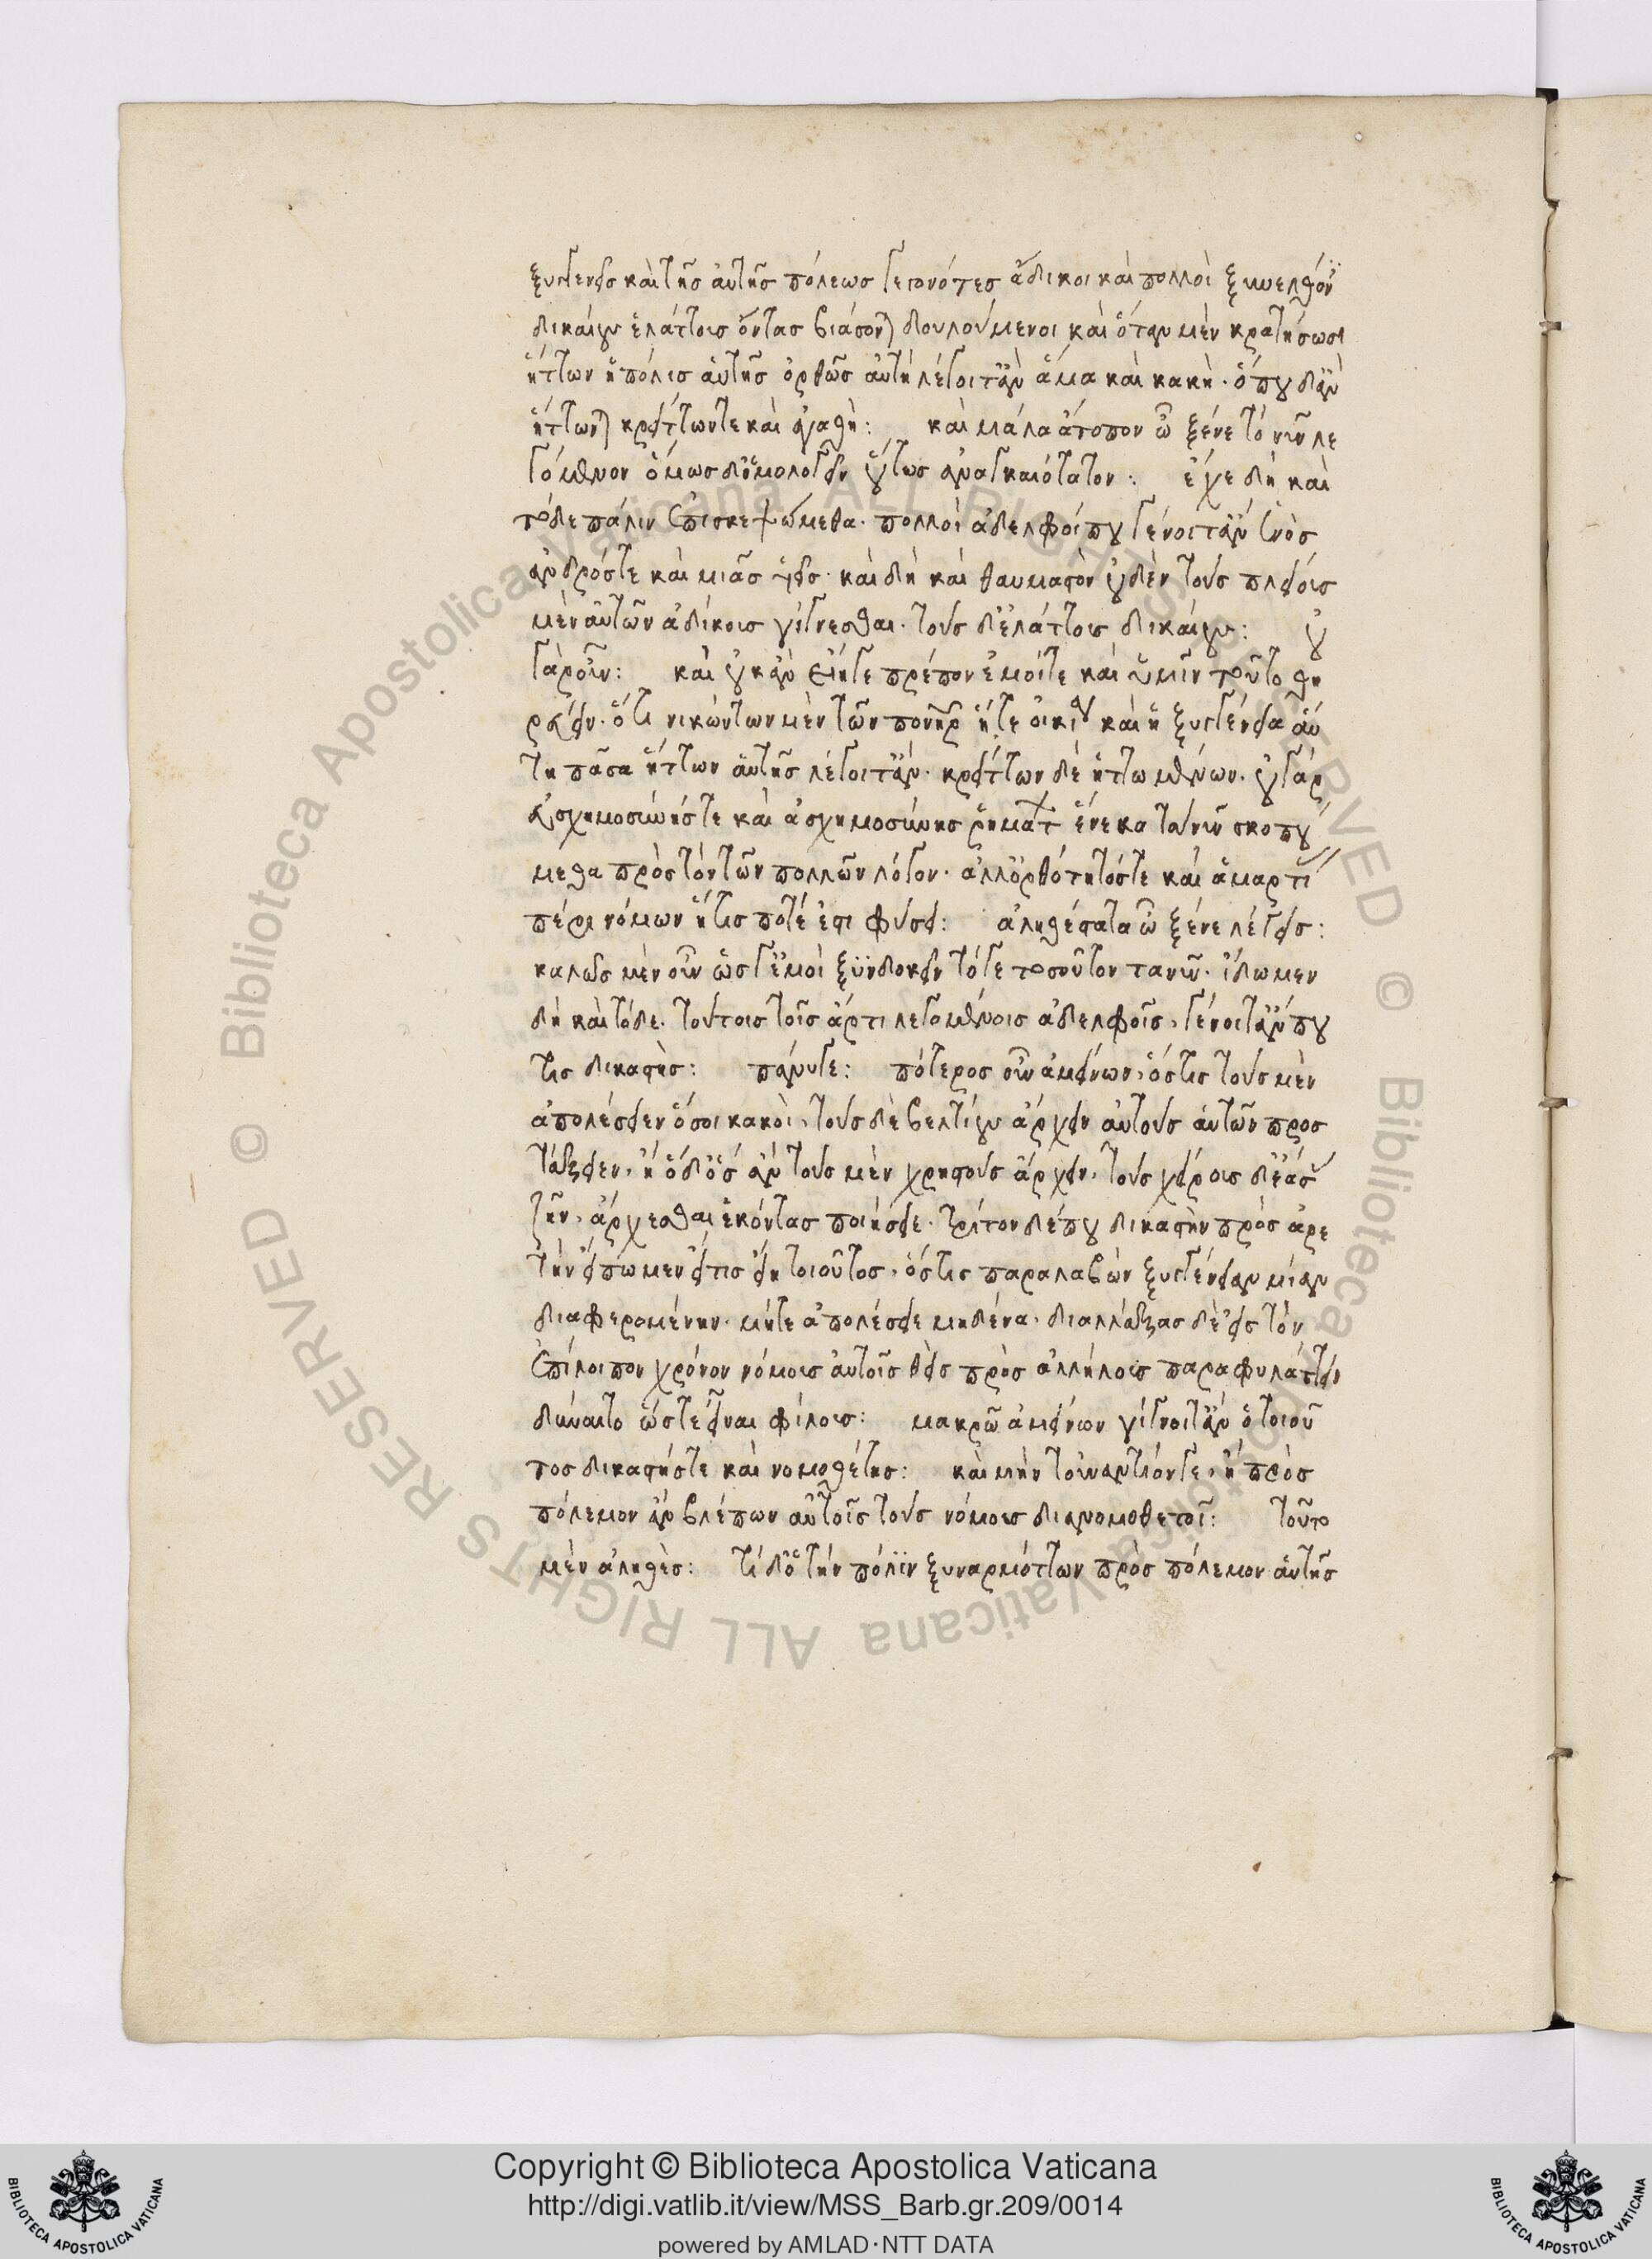 ξυγγενεῖς καὶ τῆς αὐτῆς πόλεως γεγονότες ἄδικοι καὶ πολλοὶ ξυνελθόντες
δικαίους ἐλάττους ὄντας βιάσονται δουλούμενοι καὶ ὅταν μὲν κρατήσωσι
ἥττων ἡ πόλις αὑτῆς ὀρθῶς αὐτὴ λέγοιτ' ἂν ἅμα καὶ κακή· ὅπου δ' ἂν
ἡττῶνται κρείττων τε καὶ ἀγαθή: καὶ μάλα ἄτοπον ὦ ξένε τὸ νῦν λε
γόμενον ὅμως δ' ὁμολογεῖν οὕτως ἀναγκαιότατον: ἔχε δὴ καὶ
τόδε πάλιν ἐπισκεψώμεθα· πολλοὶ ἀδελφοί που γένοιτ' ἂν ἑνὸς
ἀνδρός τε καὶ μιᾶς υἱεῖς· καὶ δὴ καὶ θαυμαστὸν οὐδὲν τοὺς πλείους
μὲν αὐτῶν ἀδίκους γίγνεσθαι· τοὺς δ' ἐλάττους δικαίους: οὐ
γὰρ οὖν: καὶ οὐκ ἂν εἴη γε πρέπον ἐμοί τε καὶ ὑμῖν τοῦτο θη
ρεύειν· ὅτι νικώντων μὲν τῶν πονηρῶν ἥ τε οἰκία καὶ ἡ ξυγγένεια αὕ
τη πᾶσα ἥττων αὑτῆς λέγοιτ' ἄν· κρείττων δὲ ἡττωμένων· οὐ γὰρ
εὐσχημοσύνης τε καὶ ἀσχημοσύνης ῥημάτων ἕνεκα τὰ νῦν σκοπού
μεθα πρὸς τὸν τῶν πολλῶν λόγον· ἀλλ' ὀρθότητός τε καὶ ἁμαρτίας
πέρι νόμων ἥτις ποτέ ἐστι φύσει: ἀληθέστατα ὦ ξένε λέγεις:
καλῶς μὲν οὖν ὥς γ' ἐμοὶ ξυνδοκεῖν τό γε τοσοῦτον τανῦν· ἴδωμεν
δὴ καὶ τόδε· τούτοις τοῖς ἄρτι λεγομένοις ἀδελφοῖς, γένοιτ' ἄν που
τις δικαστής: πάνυ γε: πότερος οὖν ἀμείνων, ὅστις τοὺς μὲν
ἀπολέσειεν ὅσοι κακοὶ, τοὺς δὲ βελτίους ἄρχειν αὐτοὺς αὑτῶν προσ
τάξειεν, ἢ ὅδ' ὃς ἂν τοὺς μὲν χρηστοὺς ἄρχειν, τοὺς χείρους δ' ἐάσας
ζῆν, ἄρχεσθαι ἑκόντας ποιήσειε· τρίτον δέ που δικαστὴν πρὸς ἀρε
τὴν εἴπωμεν εἴ τις εἴη τοιοῦτος, ὅστις παραλαβὼν ξυγγένειαν μίαν
διαφερομένην· μήτε ἀπολέσειε μηδένα, διαλλάξας δὲ εἰς τὸν
ἐπίλοιπον χρόνον νόμους αὐτοῖς θεὶς πρὸς ἀλλήλους παραφυλάττειν
δύναιτο ὥστε εἶναι φίλους: μακρῷ ἀμείνων γίγνοιτ' ἂν ὁ τοιοῦ
τος δικαστής τε καὶ νομοθέτης: καὶ μὴν τοὐναντίον γε, ἢ πρὸς
πόλεμον ἂν βλέπων αὐτοῖς τοὺς νόμους διανομοθετοῖ: τοῦτο
μὲν ἀληθές: τί δ' ὁ τὴν πόλιν ξυναρμόττων πρὸς πόλεμον αὑτῆς
© Biblioteca Apostolica Vaticana ALL RIGHTS RESERVED © Biblioteca Apostolica Vaticana ALL RIGHTS RESERVED
Copyright © Biblioteca Apostolica Vaticana
http://digi.vatlib.it/view/MSS_Barb.gr.209/0014
powered by AMLAD·NTT DATA
BIBLIOTECA APOSTOLICA VATICANA
BIBLIOTECA APOSTOLICA VATICANA